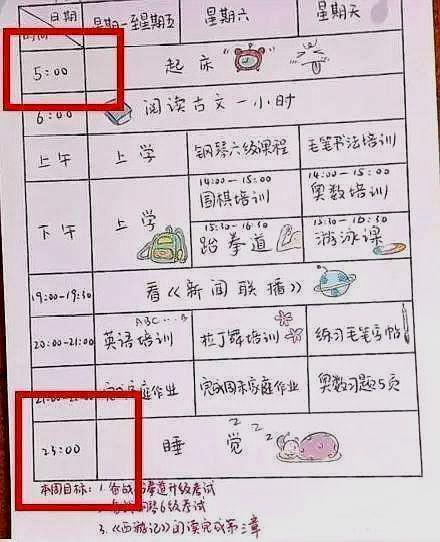 日期 星期一至星期五 星期六 星期天
时间
5:00 起床
6:00 阅读古文一小时
上午 上学 钢琴六级课程 毛笔书法培训
下午 上学
14:00-15:00 14:00-15:00
围棋培训 奥数培训
15:30-16:30 15:30-16:30
跆拳道 游泳课
19:00-19:30 看《新闻联播》
ABC...
20:00-21:00 英语培训 拉丁舞培训 练习毛笔字帖
家庭作业 完成周末家庭作业 奥数习题5页
23:00 睡觉 zzz
本周目标: 1. 备战跆拳道升级考试
钢琴6级考试
3.《西游记》阅读完成第三章